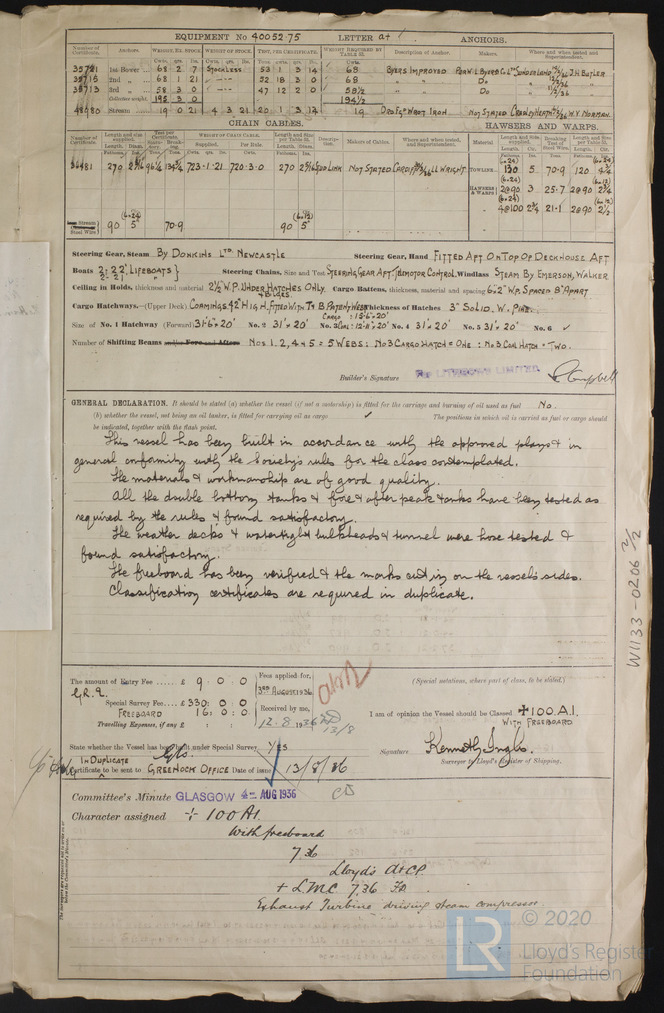 EQUIPMENT No 40052.75 LETTER at ANCHORS.
Number of Certificate. Anchors. WEIGHT, EX. STOCK. WEIGHT OF STOCK. TEST, PER CERTIFICATE. WEIGHT REQUIRED BY TABLE 53. Description of Anchor. Makers. Where and when tested and Superintendent.
35721 1st Bower 68 2 7 STOCKLESS 53 1 3 14 68 BYERS IMPROVED SUNDERLAND J.H. BUTLER
35715 2nd 68 1 21 52 18 3 0 68 Do
35713 3rd 58 3 0 47 12 2 0 58½ Do
Collective weight. 195 3 0 194½
48480 Stream 19 0 21 4 3 21 20 1 3 14 19 NOT STATED W.Y. NORMAN.
CHAIN CABLES. HAWSERS AND WARPS.
Number of Certificate. Length and size supplied. Test per Certificate. WEIGHT OF CHAIN CABLE. Length and Size per Table 53. Description. Makers of Cables. Where and when tested, and Superintendent. Material Length and Size supplied. Breaking Test of Steel Wire. Length and Size per Table 53.
270 723.1.21 720.3.0 270 STUD LINK NOT STATED CARDIFF TOWLINE 130 5 70.9 120 4¾
HAWSERS & WARPS 2@90 3 25.7 2@90 2¾
4@100 2¾ 21.1 2@90 2½
Stream Steel Wire 90 5 70.9 90 5
Steering Gear, Steam BY DONKINS LTD NEWCASTLE Steering Gear, Hand FITTED AFT ON TOP OF DECKHOUSE AFT
Boats LIFEBOATS } Steering Chains, Size and Test STEERING GEAR AFT: TELEMOTOR CONTROL. Windlass STEAM BY EMERSON, WALKER
Ceiling in Holds, thickness and material 2½" W.P. UNDER HATCHES ONLY. & BILGES. Cargo Battens, thickness, material and spacing 6"x2" W.P. SPACED 8" APART
Cargo Hatchways.—(Upper Deck) COAMINGS 42" HIGH. FITTED WITH Thickness of Hatches 3" SOLID. W. PINE.
Size of No. 1 Hatchway (Forward) 31'6"x20' No. 2 31'x20' No. 3 No. 4 31'x20' No. 5 31'x20' No. 6 ✓
Number of Shifting Beams and/or Fore and Afters NOS 1.2,4 & 5 = 5 WEBS: NO 3 CARGO HATCH = ONE: NO 3 COAL HATCH = TWO.
Builder's Signature For LITHGOWS LIMITED
GENERAL DECLARATION. It should be stated (a) whether the vessel (if not a motorship) is fitted for the carriage and burning of oil used as fuel No.
(b) whether the vessel, not being an oil tanker, is fitted for carrying oil as cargo ✓ The positions in which oil is carried as fuel or cargo should
be indicated, together with the flash point.
This vessel has been built in accordance with the approved plans & in
general conformity with the Society's rules for the class contemplated.
The materials & workmanship are of good quality.
All the double bottom tanks & fore & after peak tanks have been tested as
required by the rules & found satisfactory.
The weather decks & watertight bulkheads & tunnel were hose tested &
found satisfactory.
The freeboard has been verified & the marks cut in on the vessel's sides.
Classification certificates are required in duplicate.
W1133-0206 2/2
The amount of Entry Fee ..... £ 9 : 0 : 0
Fees applied for, 3RD AUGUST 1936
Special Survey Fee .... £ 330 : 0 : 0
FREEBOARD 16 : 0 : 0
Received by me, 12.8.1936
Travelling Expenses, if any £ : : 13/8
(Special notations, where part of class, to be stated.)
I am of opinion the Vessel should be Classed ✠100.A.1.
WITH FREEBOARD
State whether the Vessel has been built under Special Survey YES
Signature Kenneth Inglis.
Surveyor to Lloyd's Register of Shipping.
IN DUPLICATE
Certificate to be sent to GREENOCK OFFICE Date of issue 13/8/36
Committee's Minute GLASGOW AUG 1936
Character assigned + 100 A1.
With freeboard
7 36
Lloyd's A&CP.
+ LMC 7.36 FD.
Exhaust Turbine driving steam compressor.
LR © 2020
Lloyd's Register
Foundation